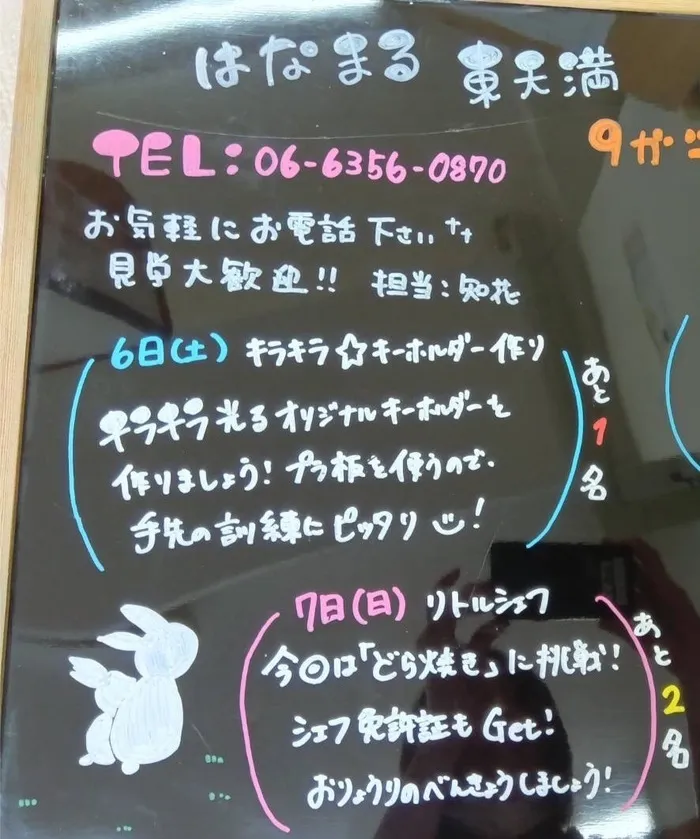 はなまる 東天満
TEL:06-6356-0870
9か
お気軽にお電話下さい
見学大歓迎!! 担当:知花
6日(土) キラキラ☆キーホルダー作り
キラキラ光るオリジナルキーホルダーを
作りましょう!プラ板を使うので、
手先の訓練にピッタリ!
あと1名
7日(日) リトルシェフ
今回は「どら焼き」に挑戦!
シェフ免許証もGet!
おりょうりのべんきょうしましょう!
あと2名